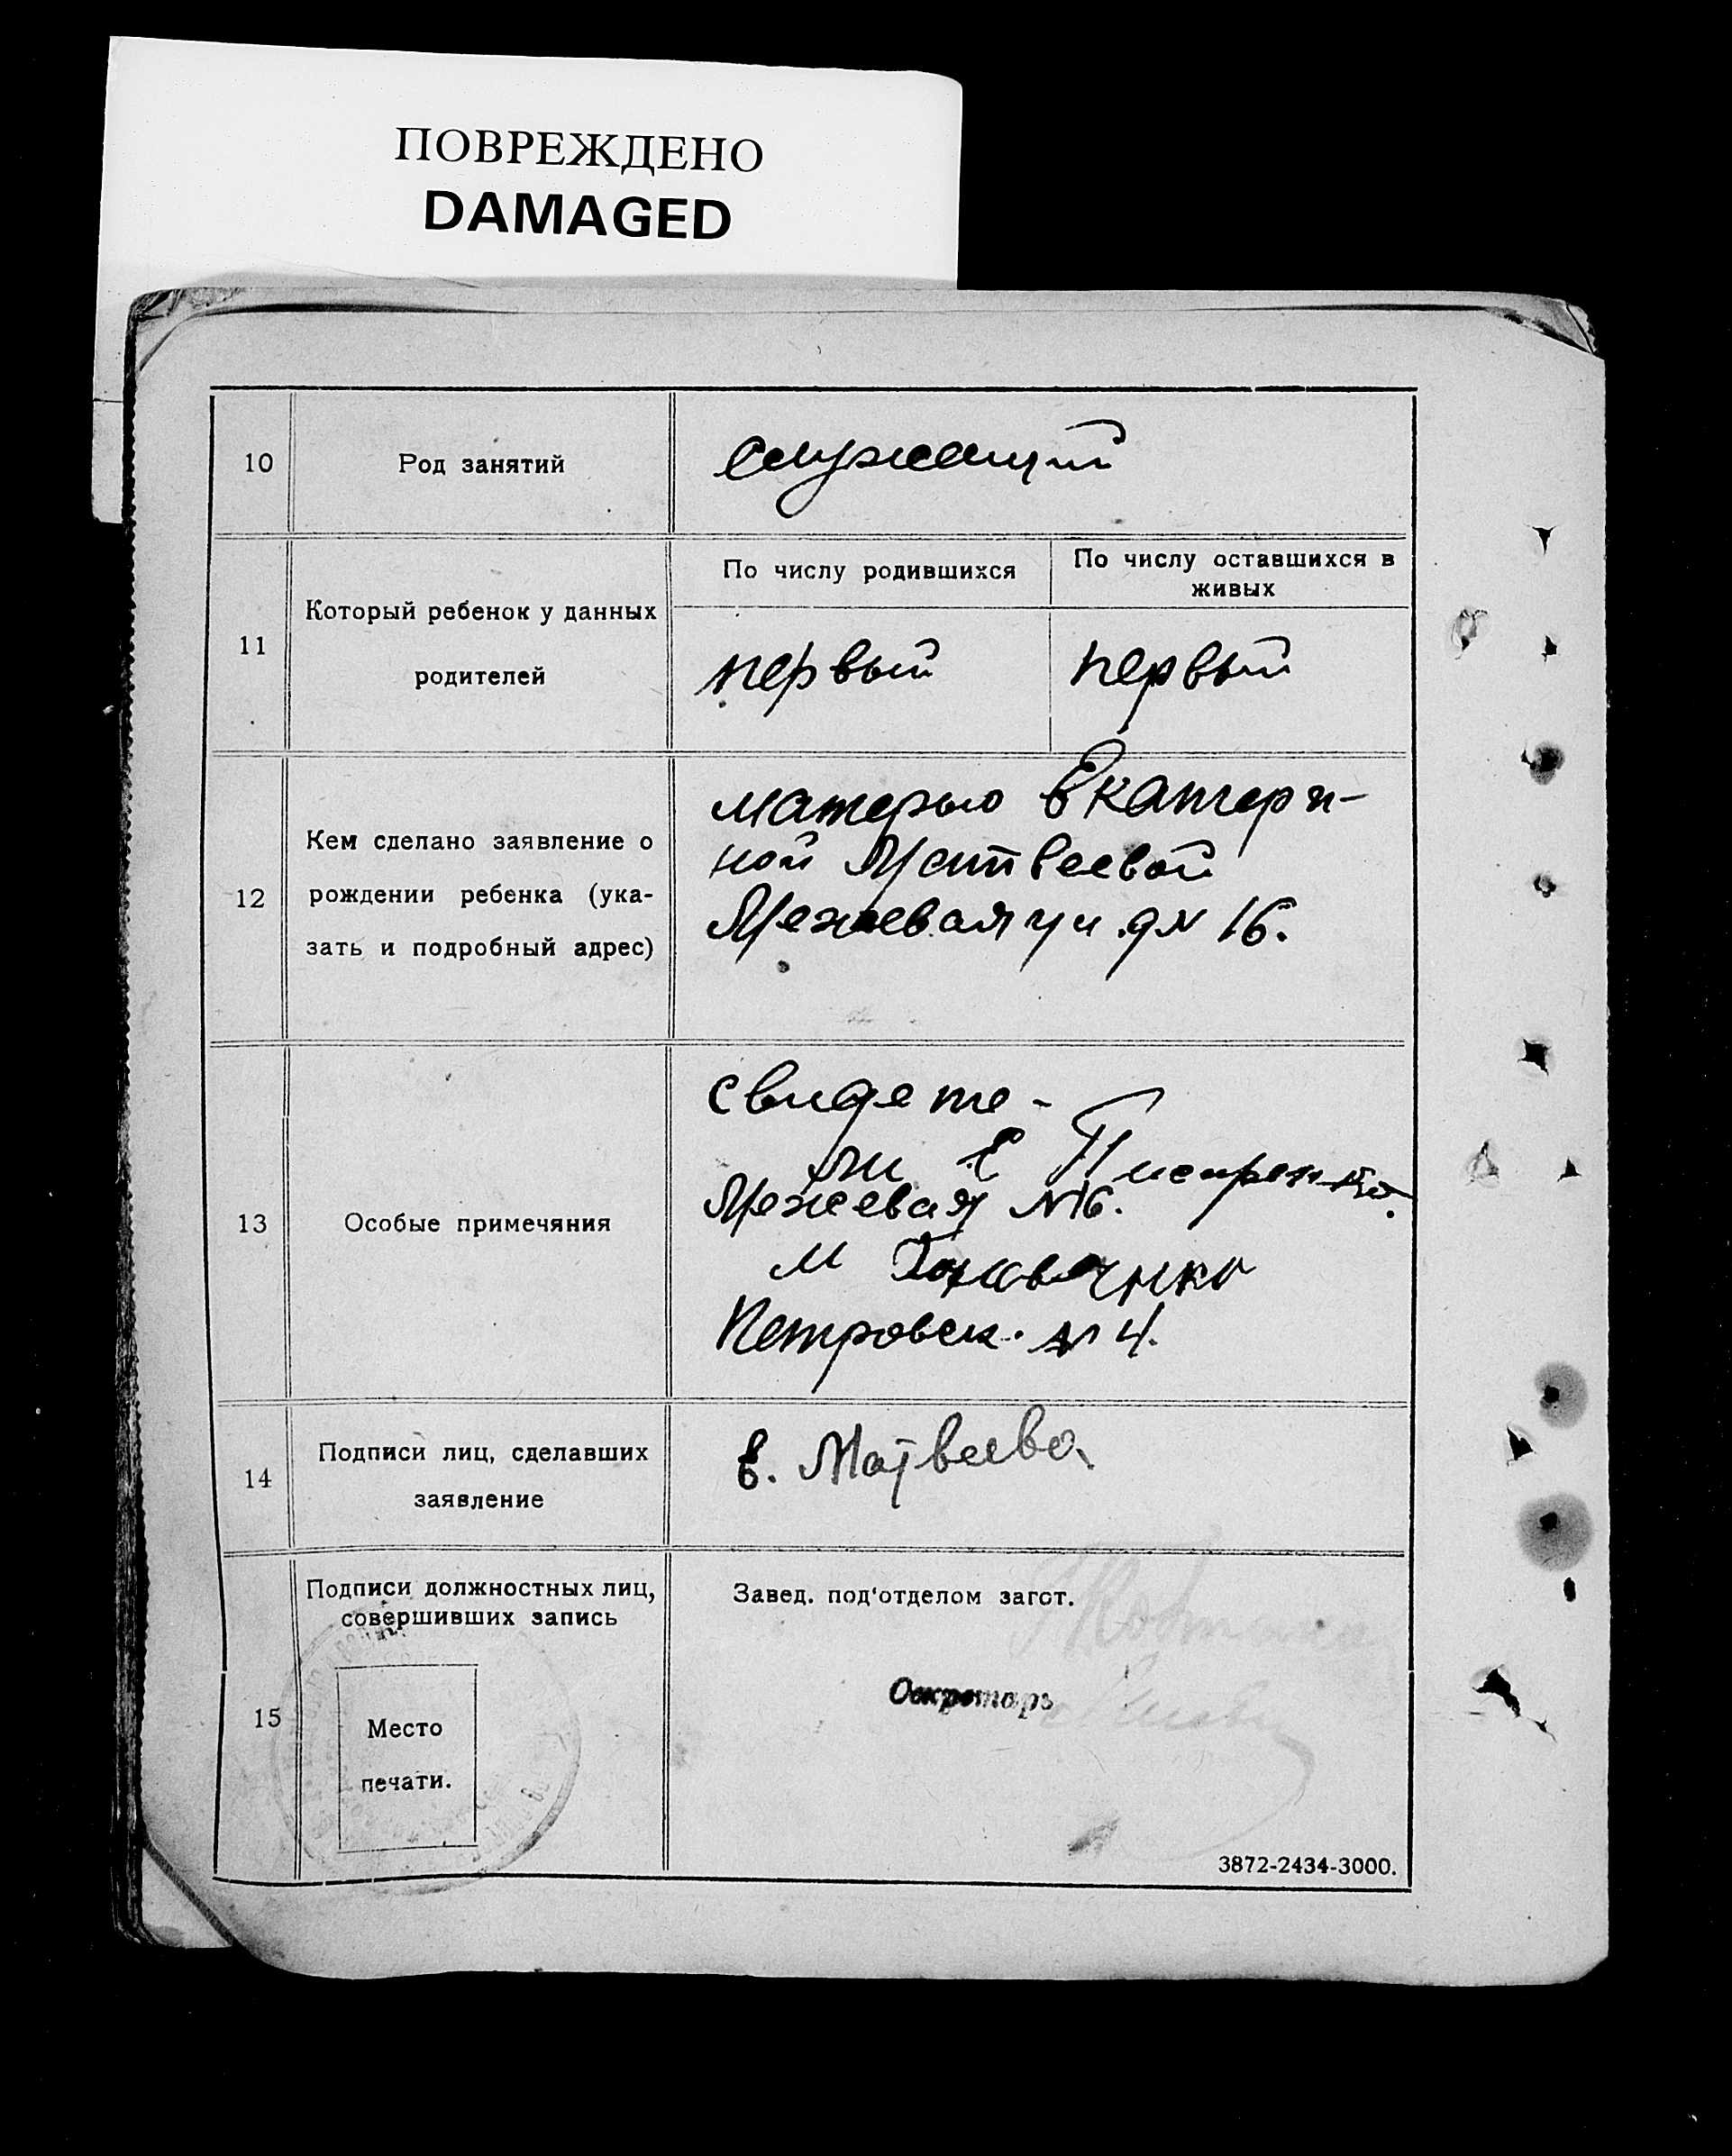 ПОВРЕЖДЕНО
DAMAGED
10
Род занятий
служащий
11
Который ребенок у данных
родителей
По числу родившихся
По числу оставшихся в
живых
первый
первый
12
Кем сделано заявление о
рождении ребенка (ука-
зать и подробный адрес)
матерью Екатери-
ной Матвеевой
Межевая ул. д N 16.
13
Особые примечяния
свидете-
ли Е
Межевая N 16.
М
Петровск. N 4.
14
Подписи лиц, сделавших
заявление
Е. Матвеева
15
Подписи должностных лиц,
совершивших запись
Место
печати.
Завед. под'отделом загот.
Секретарь
3872-2434-3000.